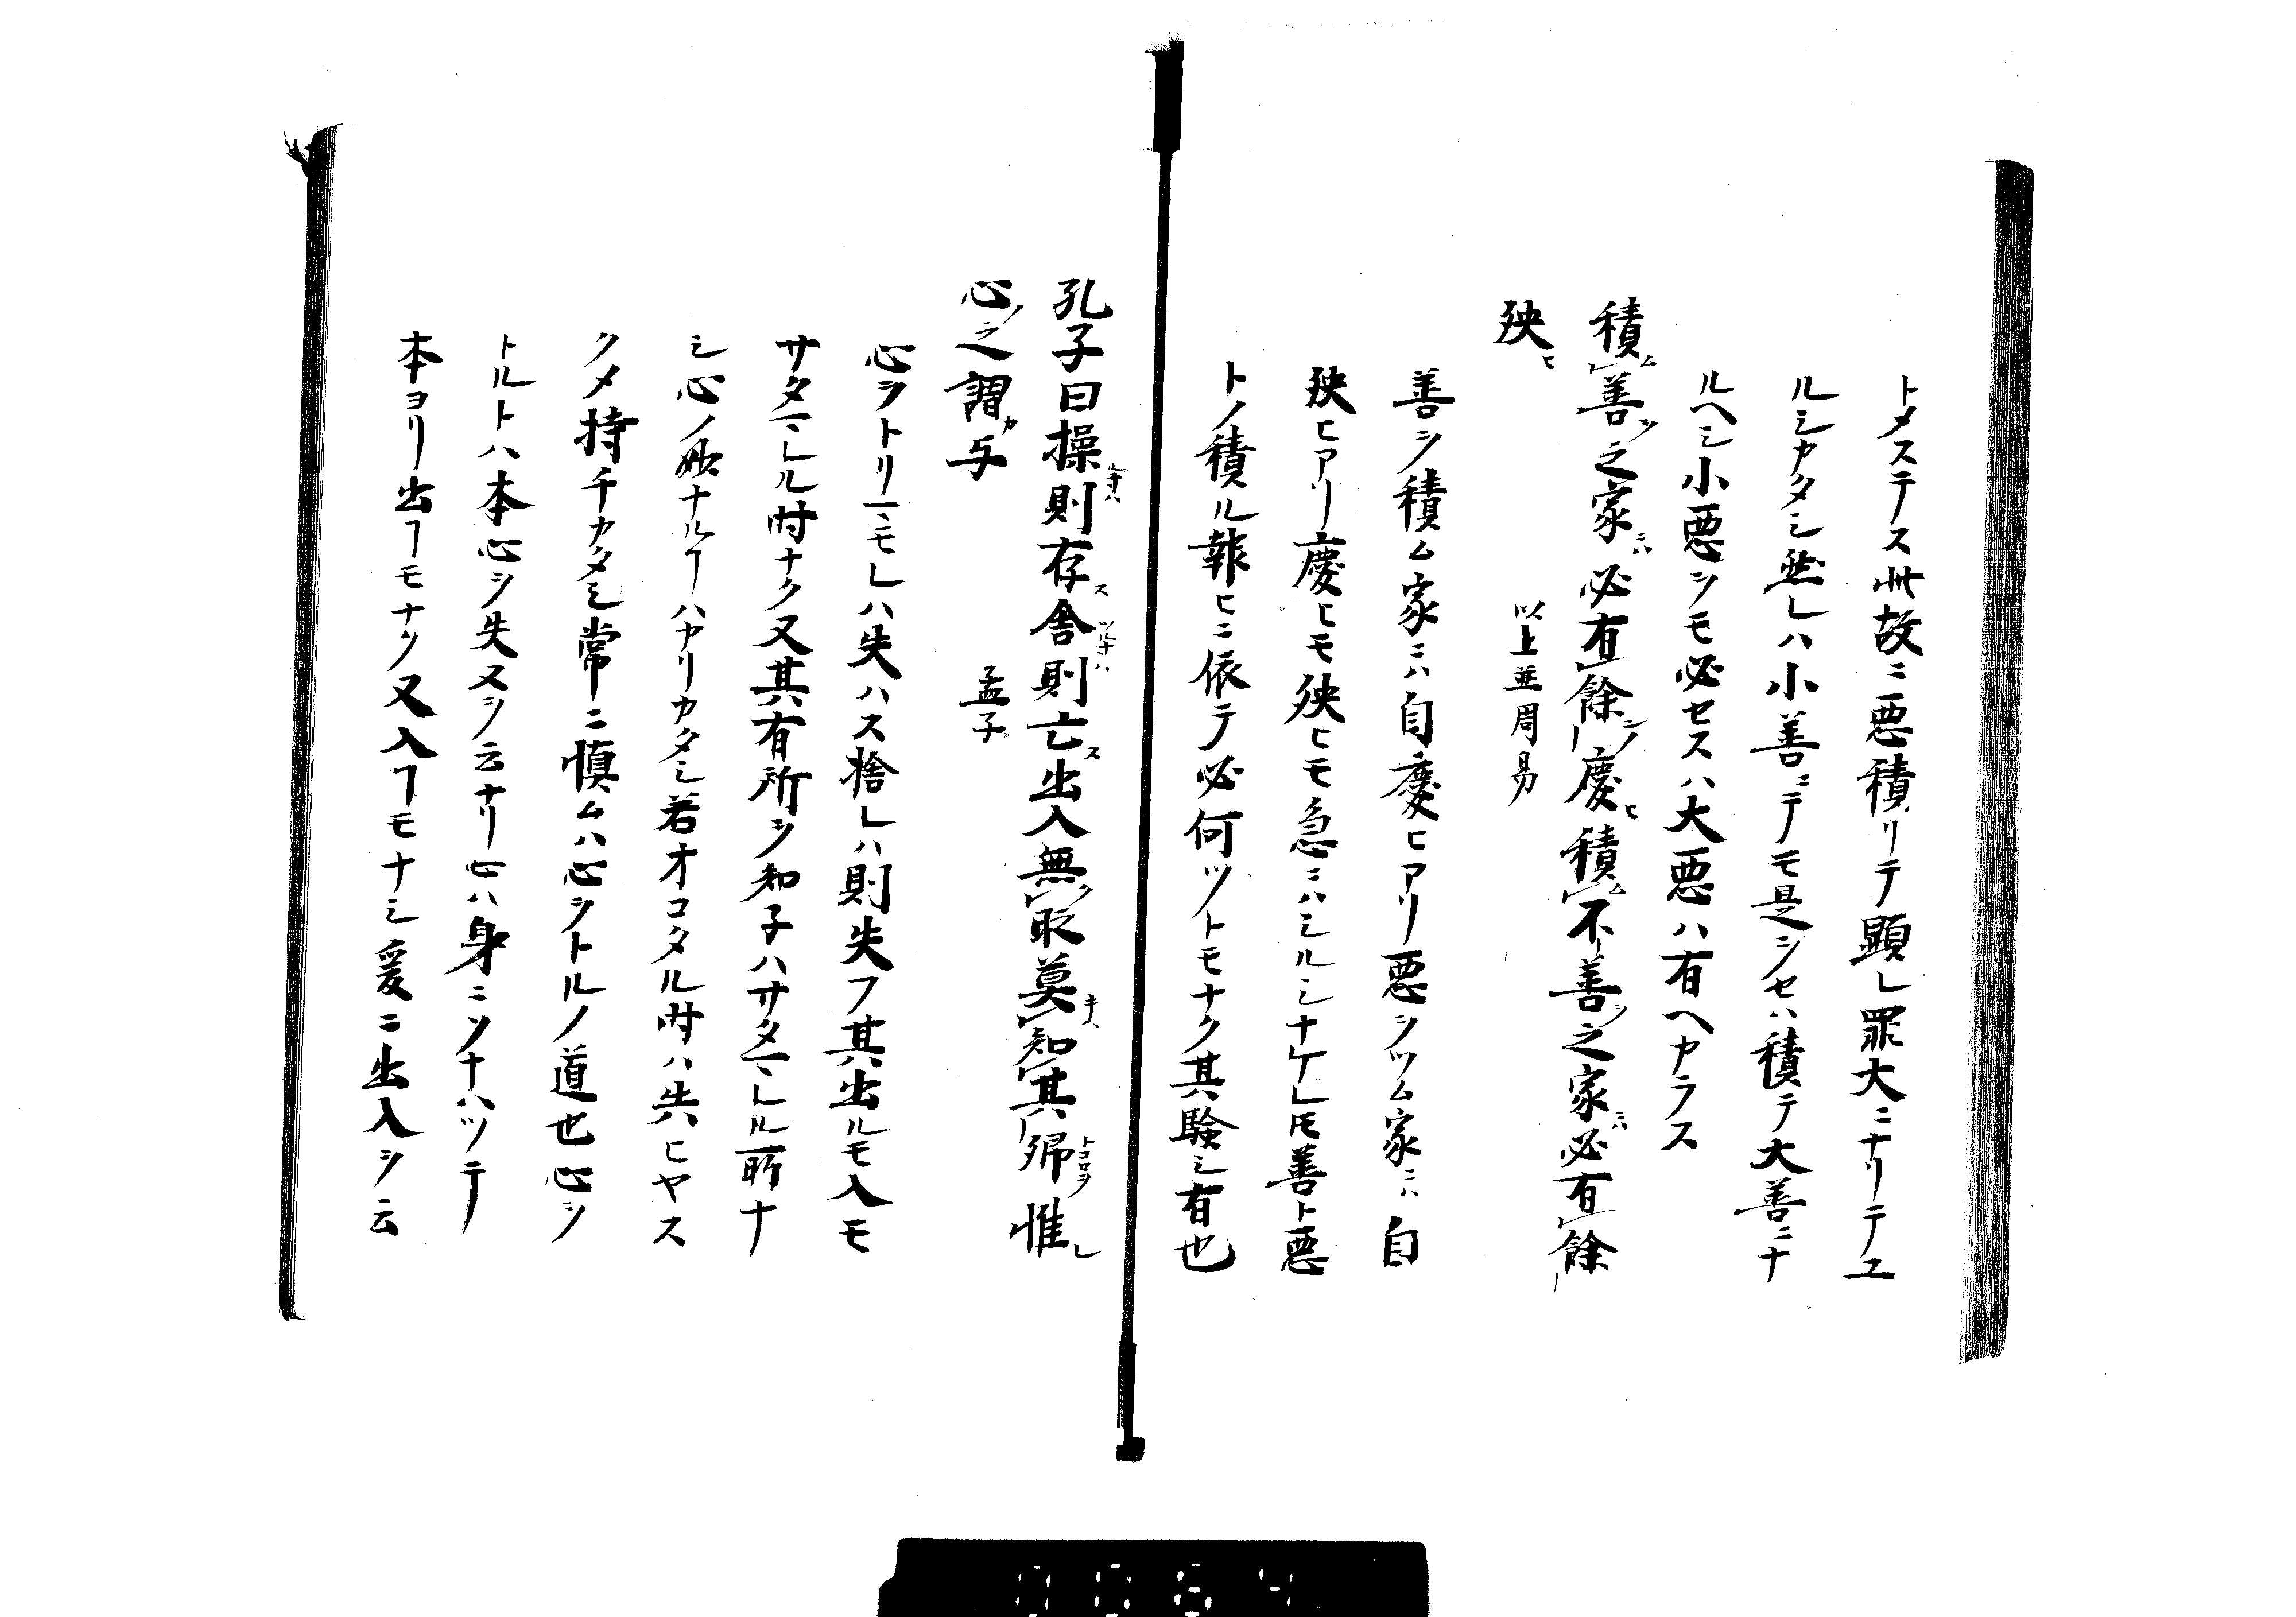 トメステス此故ニ悪積リテ顕レ罪大ニナリテユ
ルシカタシ然レハ小善ニテモ是ヲセハ積テ大善ニナ
ルヘシ小悪ヲモ必セスハ大悪ハ有ヘカラス
積ム善ヲ之家ニハ必有餘ノ慶ヒ積ム不善ヲ之家ニハ必有餘
殃ヒ
以上並周易
善ヲ積ム家ニハ自慶ヒアリ悪ヲツム家ニハ自
殃ヒアリ慶ヒモ殃ヒモ急ニハシルシナケレ𪜈善ト悪
トノ積ル報ヒニ依テ必何ツトモナク其験シ有也
孔子曰操則存ス舎則亡ス出入無時莫知其郷トコロヲ惟レ
心ノ之謂カ与
孟子
心ヲトリ モレハ失ハス捨レハ則失フ其出ルモ入モ
サタマレル時ナク又其有所ヲ知子ハサタマレル所ナ
シ心ノ妙ナルヿハカリカタシ若オコタル時ハ失ヒヤス
クメ持チカタシ常ニ慎ムハ心ヲトルノ道也心ヲ
トルトハ本心ヲ失 ヌヲ云ナリ心ハ身ニソナハツテ
本ヨリ出ヿモナク又入ヿモナシ爰ニ出入ヲ云
0064